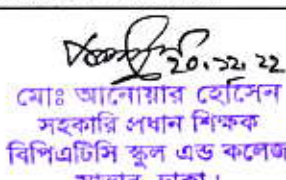 ২০.১২.২২
মোঃ আনোয়ার হোসেন
সহকারি প্রধান শিক্ষক
বিপিএটিসি স্কুল এন্ড কলেজ
সাভার, ঢাকা।